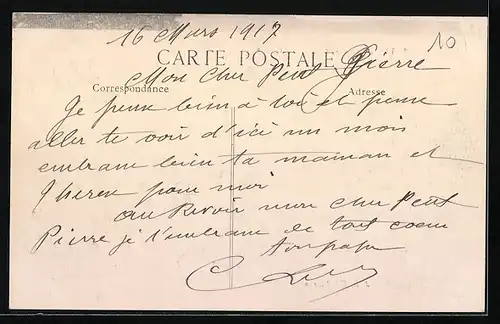 16 Mars 1917
10
CARTE POSTALE
Mon cher Petit Pierre
Correspondance
Adresse
Je pense bien à toi et pense
aller te voir d'ici un mois
embrasse bien ta maman et
pour moi
au Revoir mon cher Petit
Pierre je t'embrasse de tout coeur
ton papa